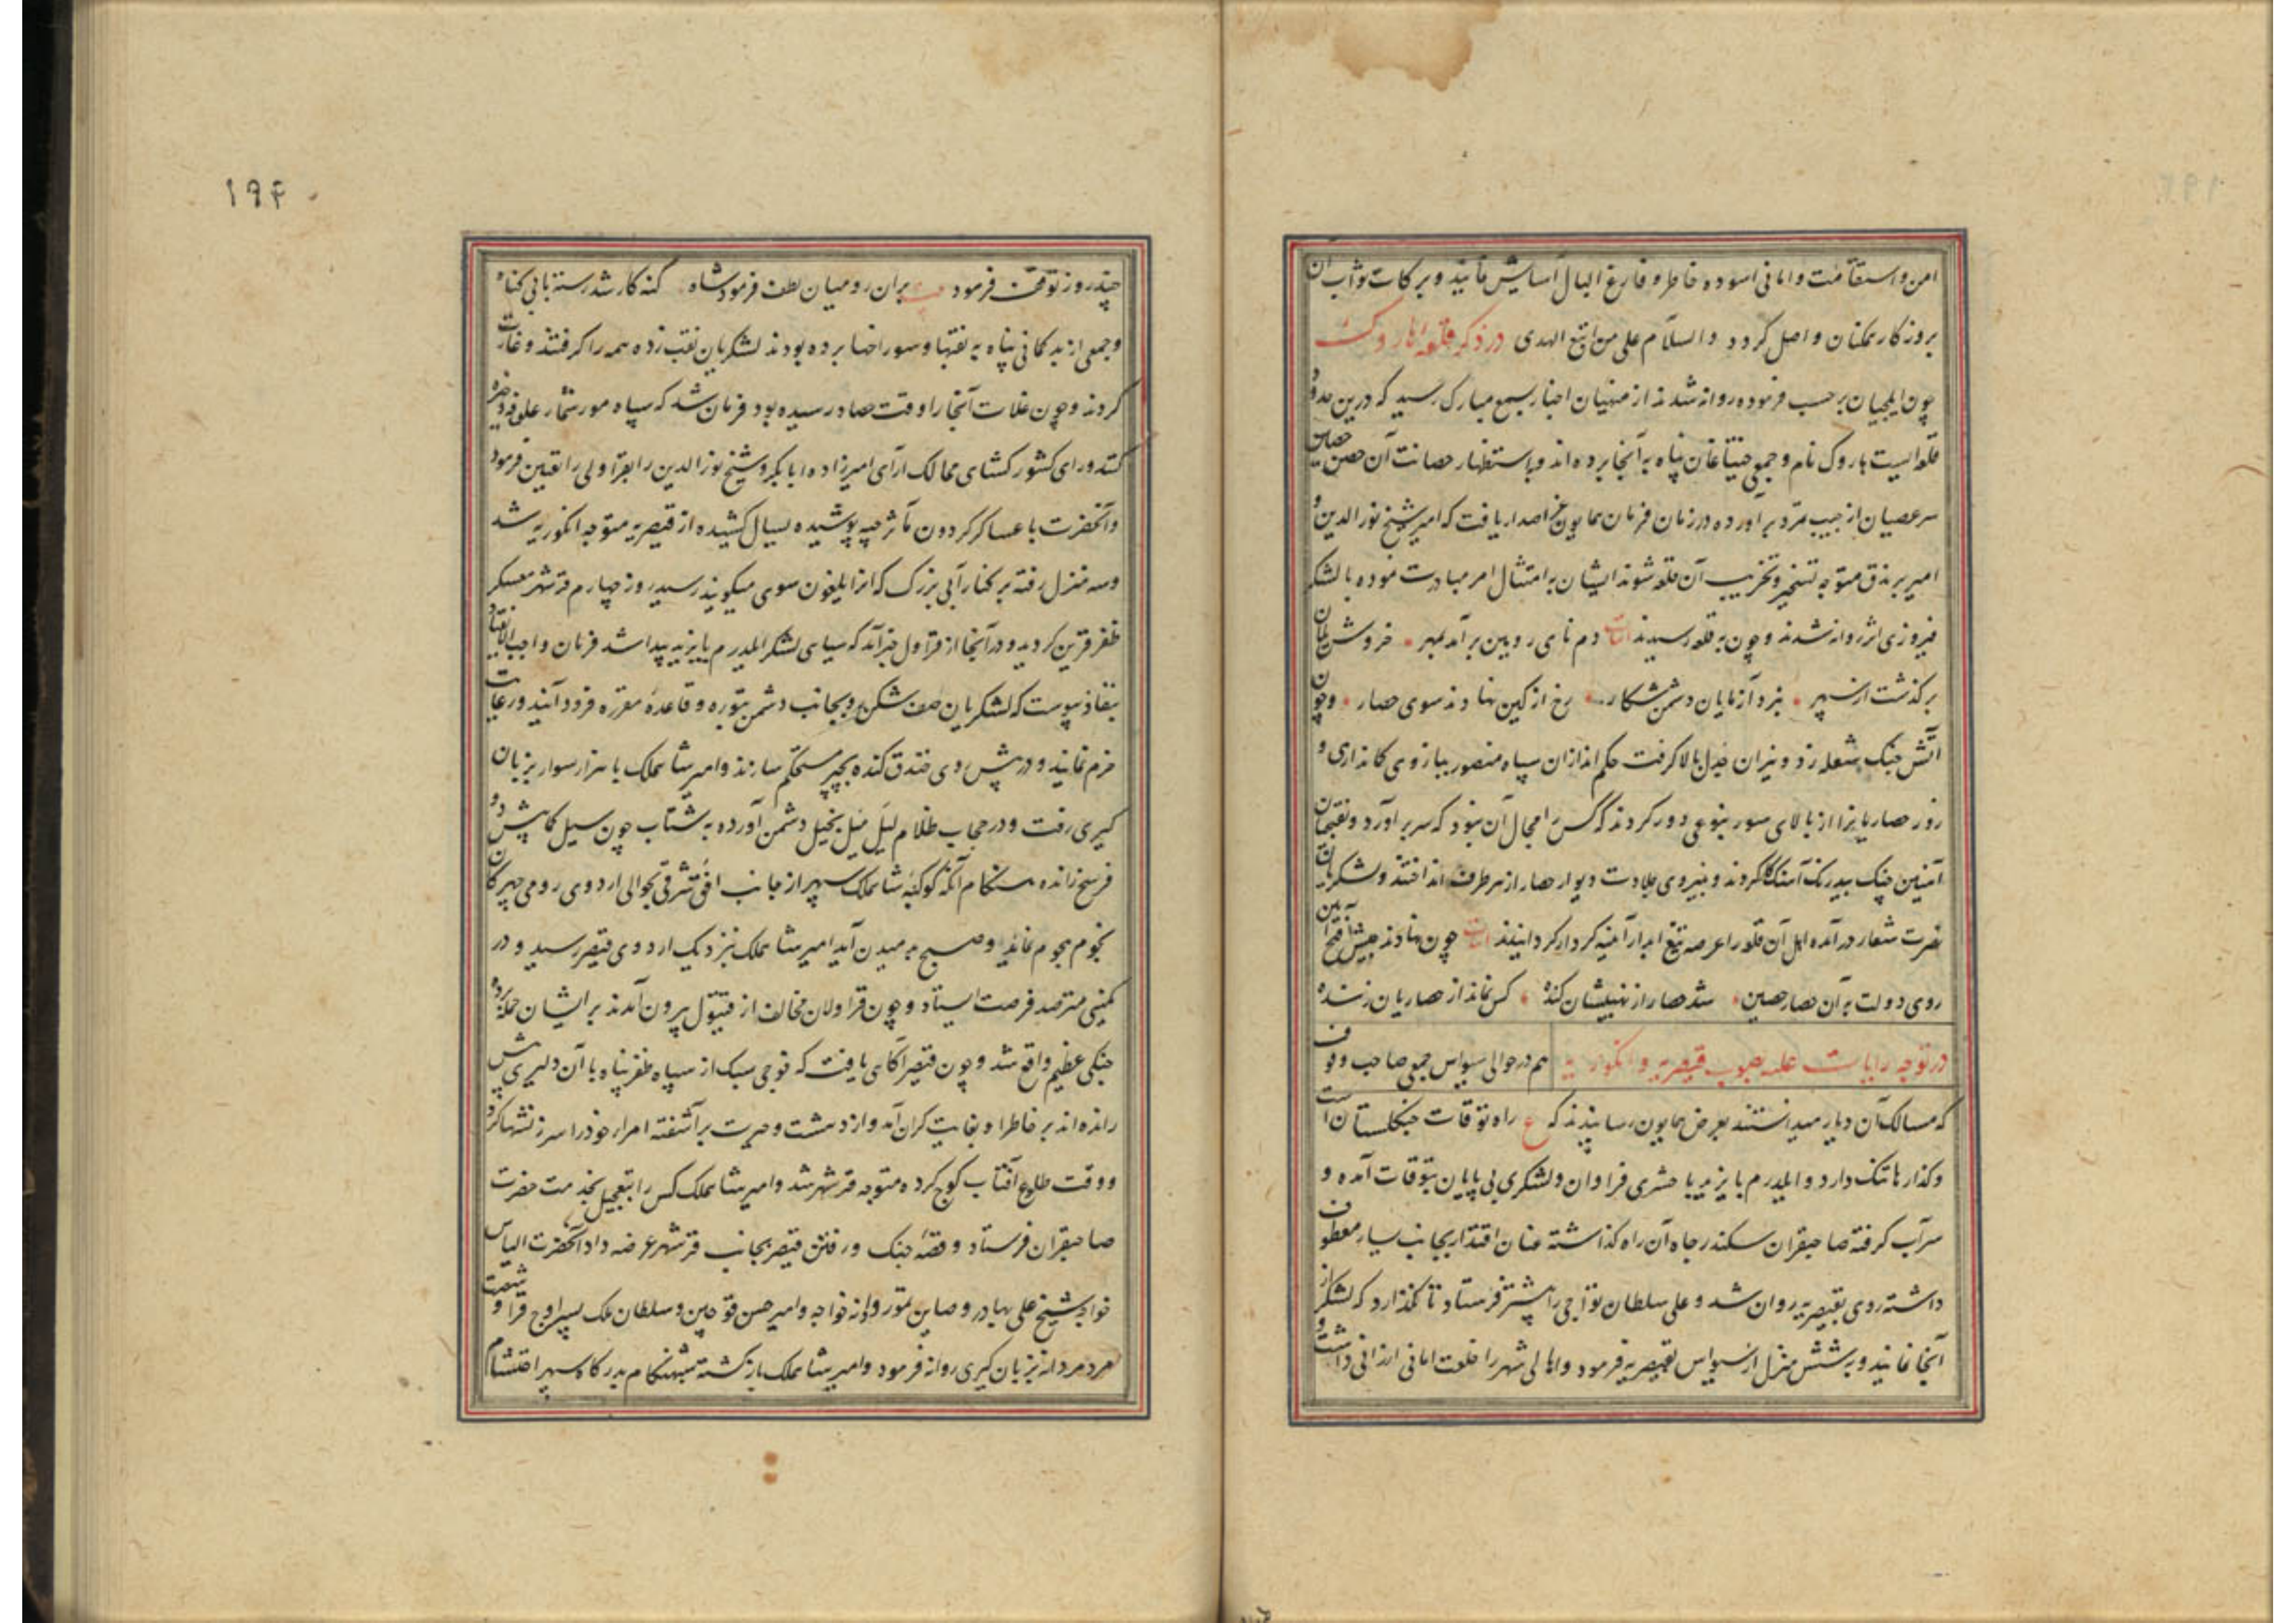 امن و استقامت و امانی اسوده خاطر و فارغ البال آسایش نمایند و برکات ثواب آن
بروزکار همکنان واصل کردد والسلام علی من اتبع الهدی در ذکر قلعه هاروک
چون ایلچیان بر حسب فرموده روانه شدند از منهیان اخبار بسمع مبارک رسید که درین حدود
قلعه‌ایست هاروک نام و جمعی پناه به آنجا برده‌اند و باستظهار حصانت آن حصن حصین
سر عصیان از جیب تمرد برآورده در زمان فرمان همایون اصدار یافت که امیر شیخ نورالدین و
امیر برندق متوجه تسخیر و تخریب آن قلعه شوند ایشان به امتثال امر مبادرت نموده با لشکر
فیروزی اثر روانه شدند و چون به قلعه رسیدند ابیات دم نای رویین برآمد بمهر خروش یلان
برکذشت از سپهر نبرد آزمایان دشمن شکار رخ از کین نهادند سوی حصار و چون
آتش جنک شعله زد و نیران بالا کرفت حکم اندازان سپاه منصور ببازوی کمانداری و
زور حصاریانرا از بالای سور بنوعی دور کردند که کس را مجال آن نبود که سر برآورد و نقبچیان
آهنین چنک بیدرنک آهنک کار کردند و بنیروی جلادت دیوار حصار از هر طرف انداختند و لشکریان
نصرت شعار درآمده اهل آن قلعه را عرضه تیغ ابدار آینه کردار کردانیدند ابیات چون نهادند جیش فتح آیین
روی دولت به آن حصار حصین شد حصار از نهیبشان کنده کس نماند از حصاریان زنده
در توجه رایات علیه بصوب قیصریه و انکوریه هم در حوالی سیواس جمعی صاحب وقوف
که مسالک آن دیار میدانستند بعرض همایون رسانیدند که ع راه توقات جنکلستان است
و کذارها تنک دارد و ایلدرم بایزید با حشری فراوان و لشکری بی پایان بتوقات آمده و
سر آب کرفته صاحبقران سکندر جاه آن راه کذاشته عنان اقتدار بجانب یسار معطوف
داشته روی بقیصریه روان شد و علی سلطان تواجی را پیشتر فرستاد تا نکذارد که لشکر از
آنجا نمایند و به شش منزل از سیواس بقیصریه فرمود و اهالی شهر را خلعت امانی ارزانی داشت و
۱۹۴
چند روز توقف فرمود بیت بران رومیان لطف فرمود شاه کنه کار شد رسته با بی کناه
و جمعی از بد کمانی پناه به نقبها و سوراخها برده بودند لشکریان نقب زده همه را کرفتند و غارت
کردند و چون غلات آنجا را وقت حصاد رسیده بود فرمان شد که سپاه مور شمار علوفه ذخیره
کنند و رای کشور کشای ممالک آرای امیرزاده ابابکر و شیخ نورالدین را بقراولی را تعیین فرمود
و آنحضرت با عساکر کردون مآثر جیبه پوشیده یسال کشیده از قیصریه متوجه انکوریه شد
و سه منزل رفته بر کنار آبی بزرک که انرا ایلغون سوی میکویند رسید روز چهارم قرشهر معسکر
ظفر قرین کردید و در آنجا از قراول خبر آمد که سیاهی لشکر ایلدرم بایزید پیدا شد فرمان واجب الانقیاد
بنفاذ پیوست که لشکریان صف شکن رو بجانب دشمن بتوره و قاعده مقرره فرود آیند و رعایت
حزم نمایند و در پیش دی خندق کنده بچپر مستحکم سازند و امیر شاهملک با هزار سوار بزبان
کیری رفت و در حجاب ظلام لیل میل بخیل دشمن آورده به شتاب چون سیل کما بیش ده
فرسخ رانده هنکام آنکه کوکبه شاهملک سپهر از جانب افق شرقی بحوالی اردوی رومی چهرکان
نجوم هجوم نماید و صبح به میدن آید امیر شاهملک نزدیک اردوی قیصر رسید و در
کمینی مترصد فرصت ایستاد و چون قراولان مخالف از قیتول بیرون آمدند بر ایشان حمله کرده
جنکی عظیم واقع شد و چون قیصر آکاهی یافت که فوجی سبک از سپاه ظفر پناه با آن دلیری پیش
رانده‌اند بر خاطر او بغایت کران آمد و از دهشت و حیرت برآشفته امراء خود را سرزنشها کرد
و وقت طلوع آفتاب کوچ کرده متوجه قرشهر شد و امیر شاهملک کس را بتعجیل بخدمت حضرت
صاحبقران فرستاد و قصه جنک و رفتن قیصر بجانب قرشهر عرضه داد آنحضرت الیاس
خواجه شیخ علی بهادر و صاین تمور و خواجه و امیر حسن قوجین و سلطان ملک پسر اوج قرا و شصت
مرد مردانه بزبان کیری روانه فرمود و امیر شاهملک بازکشته شبهنکام بدرکاه سپهر احتشام